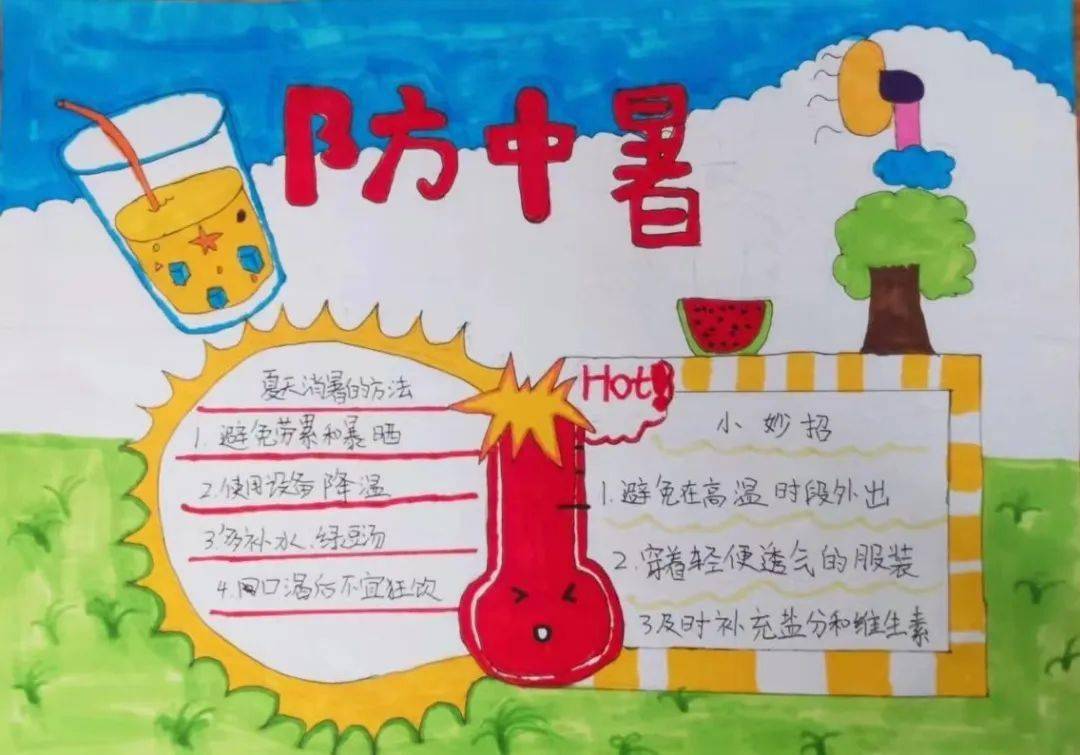 防中暑
夏天消暑的方法
1. 避免劳累和暴晒
2. 使用设备降温
3. 多补水、绿豆汤
4. 口渴后不宜狂饮
Hot!
小妙招
1. 避免在高温时段外出
2. 穿着轻便透气的服装
3 及时补充盐分和维生素